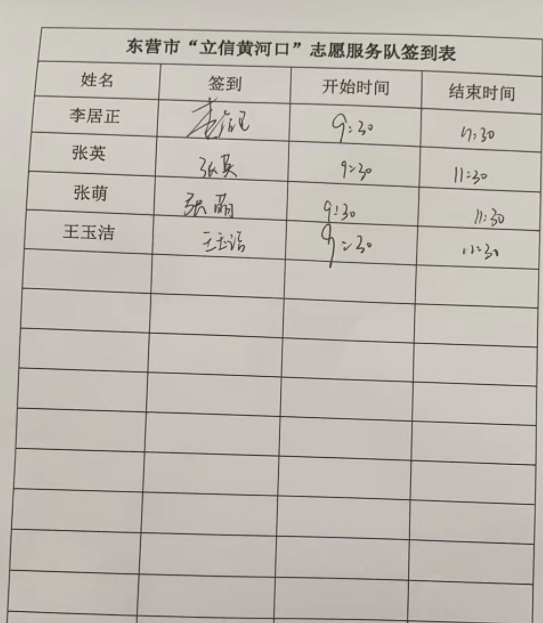 东营市“立信黄河口”志愿服务队签到表
姓名 签到 开始时间 结束时间
李居正 9:30 11:30
张英 张英 9:30 11:30
张萌 张萌 9:30 11:30
王玉洁 王玉洁 9:30 11:30